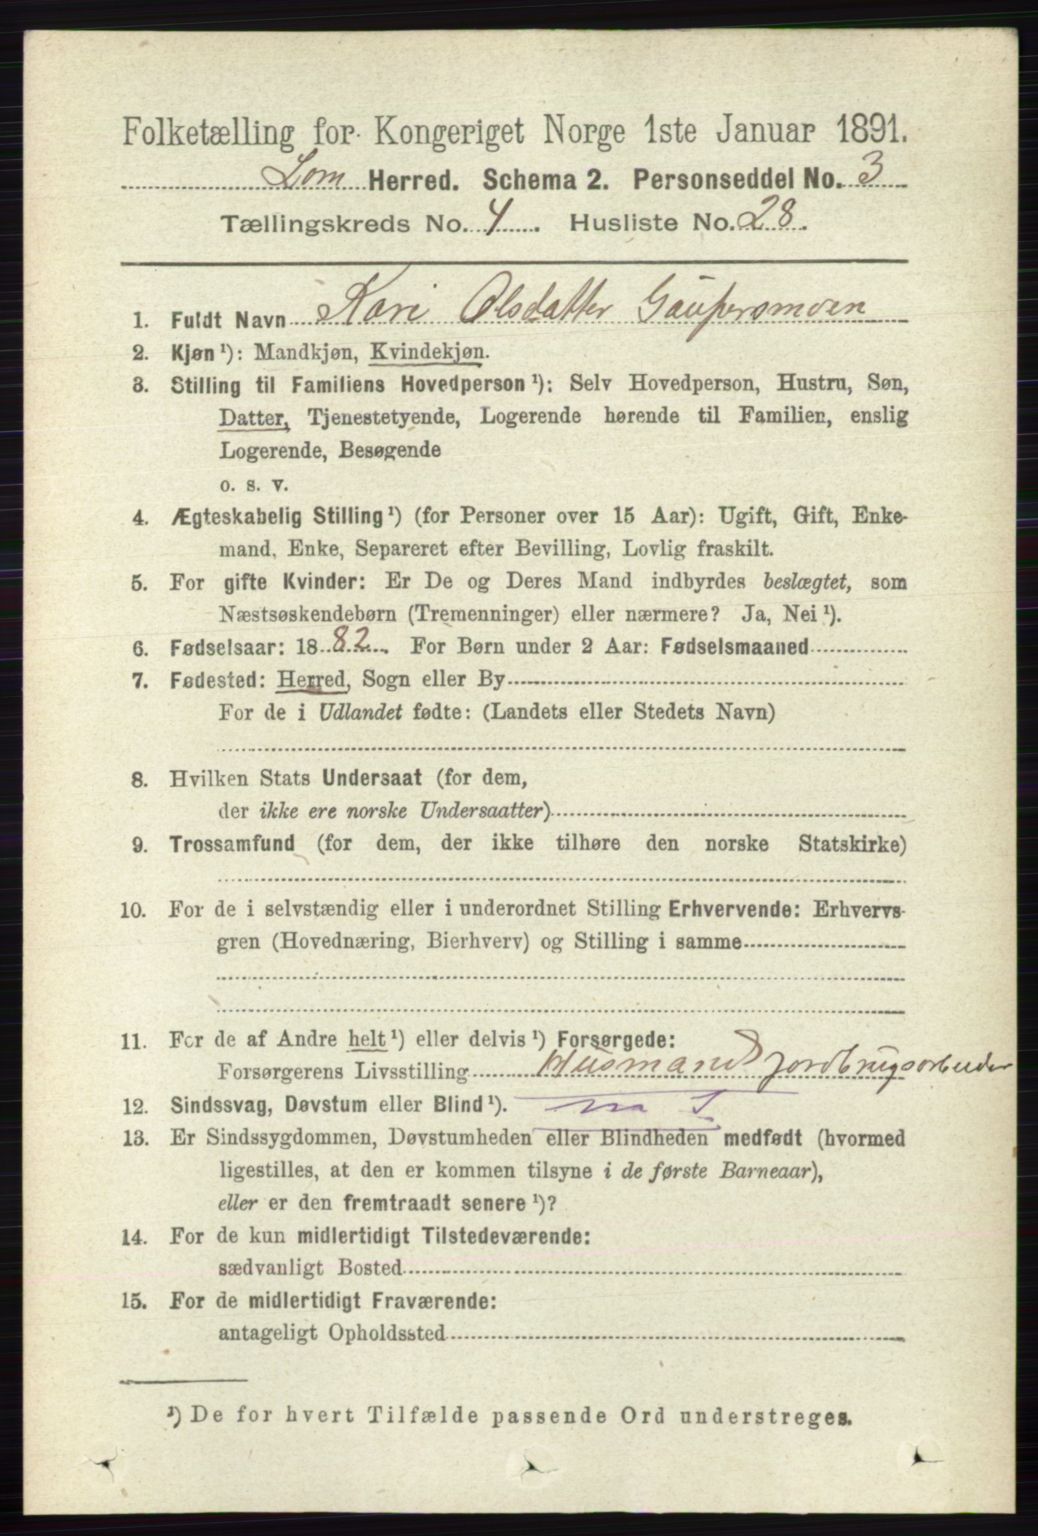 Folketælling for Kongeriget Norge 1ste Januar 1891.
Lom Herred. Schema 2. Personseddel No. 3
Tællingskreds No. 4. Husliste No. 28.
1. Fuldt Navn Kari Olsdatter
2. Kjøn ¹): Mandkjøn, Kvindekjøn.
3. Stilling til Familiens Hovedperson ¹): Selv Hovedperson, Hustru, Søn,
Datter, Tjenestetyende, Logerende hørende til Familien, enslig
Logerende, Besøgende
o. s. v.
4. Ægteskabelig Stilling ¹) (for Personer over 15 Aar): Ugift, Gift, Enke-
mand, Enke, Separeret efter Bevilling, Lovlig fraskilt.
5. For gifte Kvinder: Er De og Deres Mand indbyrdes beslægtet, som
Næstsøskendebørn (Tremenninger) eller nærmere? Ja, Nei ¹).
6. Fødselsaar: 1882. For Børn under 2 Aar: Fødselsmaaned
7. Fødested: Herred, Sogn eller By
For de i Udlandet fødte: (Landets eller Stedets Navn)
8. Hvilken Stats Undersaat (for dem,
der ikke ere norske Undersaatter)
9. Trossamfund (for dem, der ikke tilhøre den norske Statskirke)
10. For de i selvstændig eller i underordnet Stilling Erhvervende: Erhvervs-
gren (Hovednæring, Bierhverv) og Stilling i samme
11. For de af Andre helt ¹) eller delvis ¹) Forsørgede:
Forsørgerens Livsstilling Husmand Jordbrugsarbeider
12. Sindssvag, Døvstum eller Blind ¹).
13. Er Sindssygdommen, Døvstumheden eller Blindheden medfødt (hvormed
ligestilles, at den er kommen tilsyne i de første Barneaar),
eller er den fremtraadt senere ¹)?
14. For de kun midlertidigt Tilstedeværende:
sædvanligt Bosted
15. For de midlertidigt Fraværende:
antageligt Opholdssted
¹) De for hvert Tilfælde passende Ord understreges.